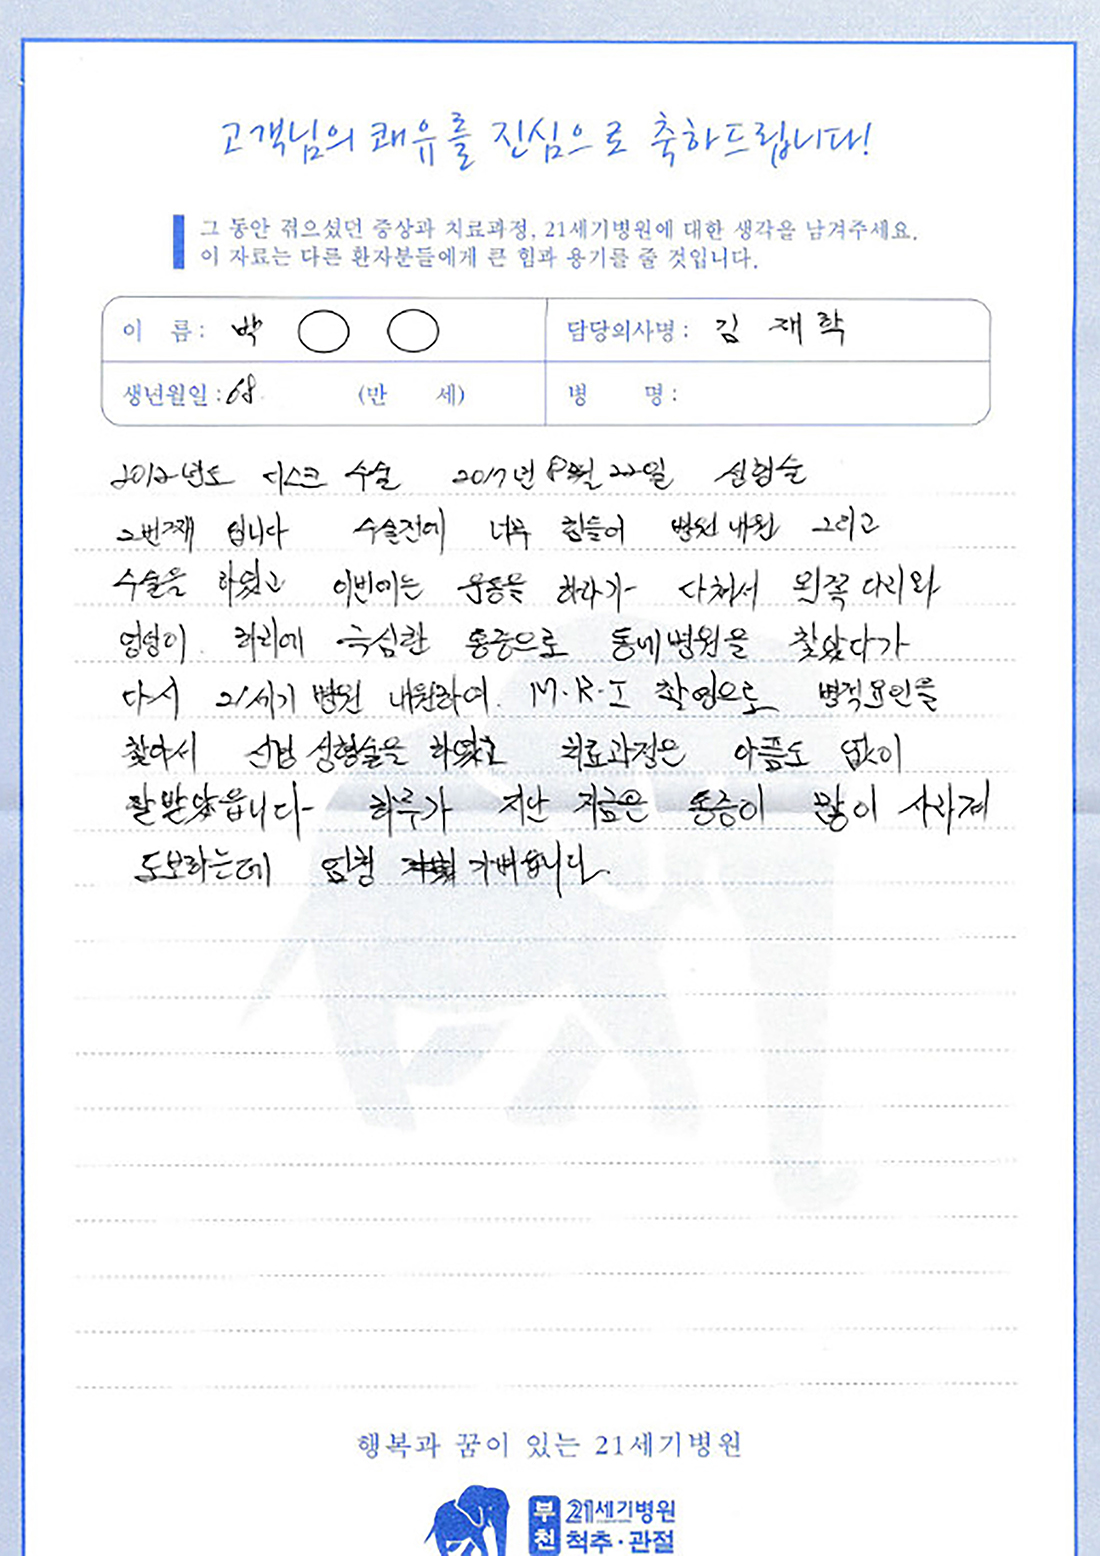 고객님의 쾌유를 진심으로 축하드립니다!
그 동안 겪으셨던 증상과 치료과정, 21세기병원에 대한 생각을 남겨주세요.
이 자료는 다른 환자분들에게 큰 힘과 용기를 줄 것입니다.
이 름 : 박 ○ ○ 담당의사명 : 김 재 학
생년월일 : 68 (만 세) 병 명 :
2012년도 디스크 수술 2017년 8월 22일 성형술
2번째 입니다 수술전에 너무 힘들어 병원 내원 그리고
수술을 하였고 이번에는 운동을 하라가 다쳐서 왼쪽 다리와
엉덩이 허리에 극심한 통증으로 동네병원을 찾았다가
다시 21세기 병원 내원하여 M·R·I 촬영으로 병적요인을
찾아서 신경성형술을 하였고 치료과정은 아픔도 없이
잘 받았읍니다 하루가 지난 지금은 통증이 많이 사라져
도보하는데 엄청 가벼웁니다.
행복과 꿈이 있는 21세기병원
부천 21세기병원
척추·관절